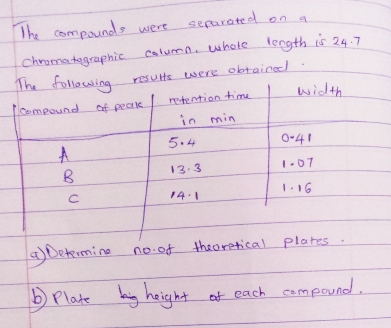 The compounds were separated on a
chromatographic column. whole length is 24.7
The following results were obtained.
compound of peak retention time in min width
A 5.4 0.41
B 13.3 1.07
C 14.1 1.16
a) Determine no. of theoretical plates.
b) Plate height of each compound.